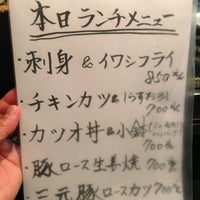 本日ランチメニュー
・刺身&イワシフライ
850円
・チキンカツ&しらすおろし
700円
・カツオ丼&小鉢
700円
・豚ロース生姜焼 700円
・三元豚ロースカツ 700円